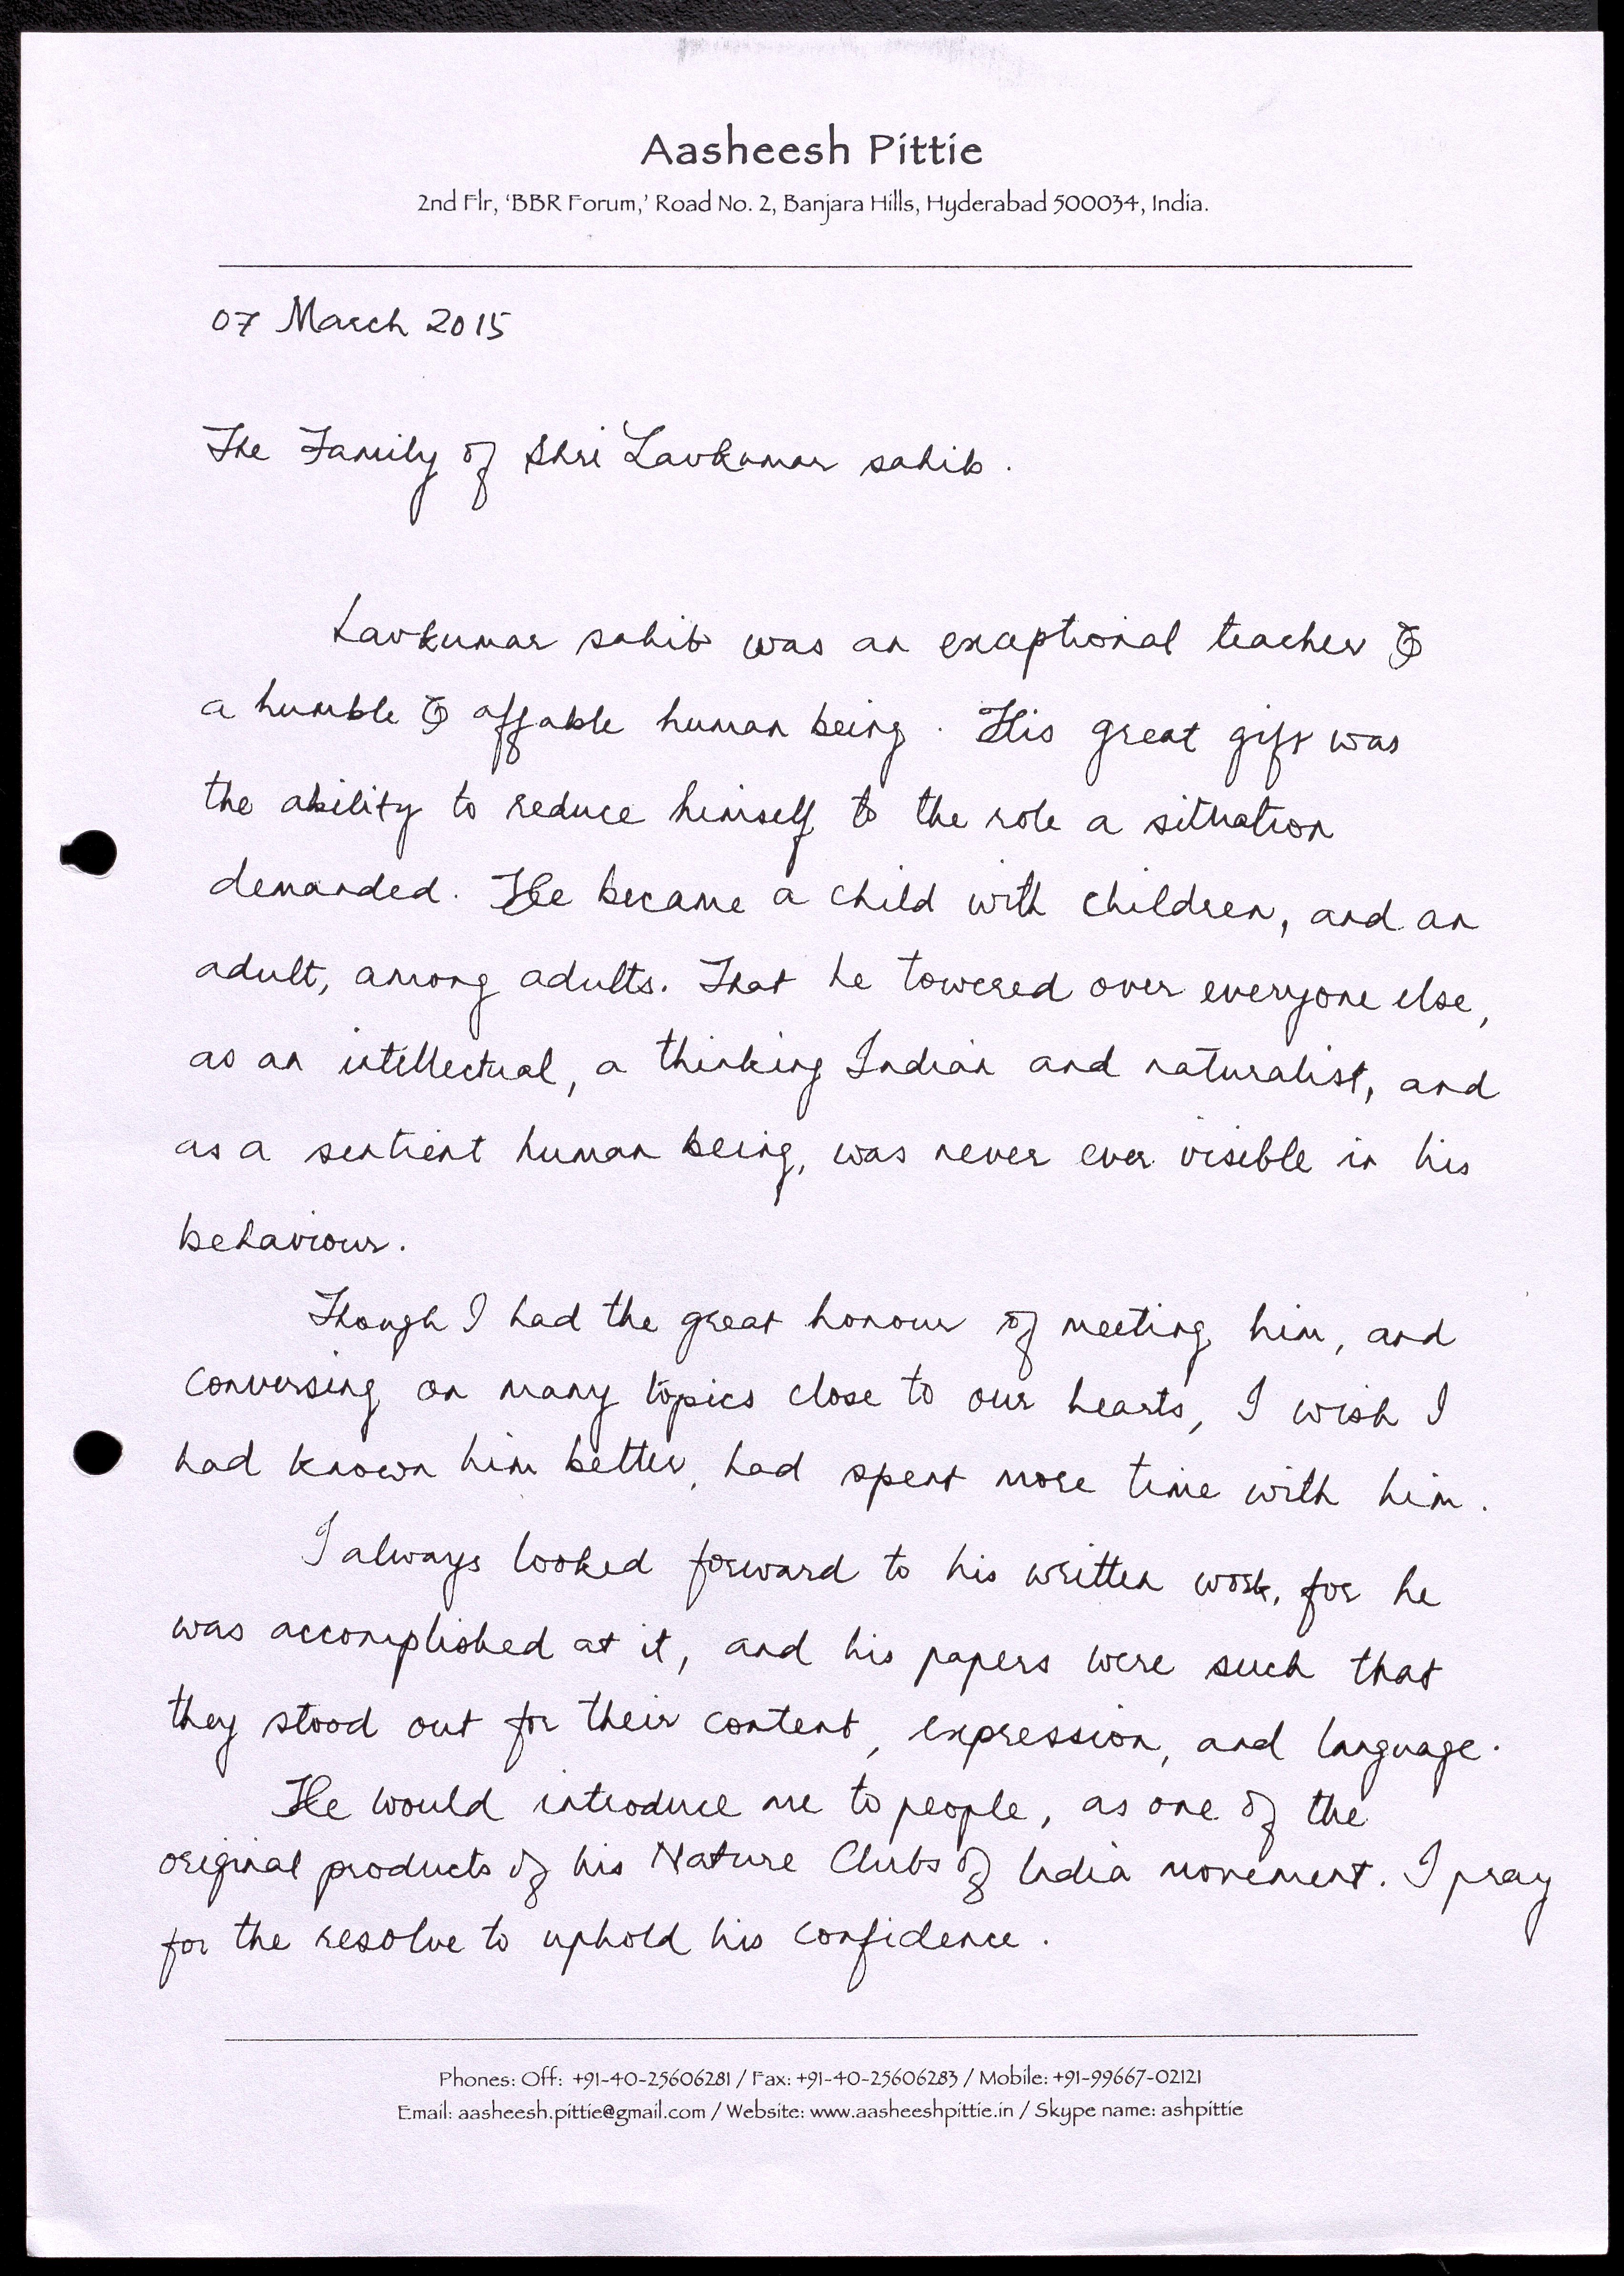 Aasheesh Pittie
2nd Flr, ‘BBR Forum,’ Road No. 2, Banjara Hills, Hyderabad 500034, India.
07 March 2015
The Family of Shri Lavkumar sahib.
Lavkumar sahib was an exceptional teacher &
a humble & affable human being. His great gift was
the ability to reduce himself to the role a situation
demanded. He became a child with children, and an
adult, among adults. That he towered over everyone else,
as an intellectual, a thinking Indian and naturalist, and
as a sentient human being, was never ever visible in his
behaviour.
Though I had the great honour of meeting him, and
conversing on many topics close to our hearts, I wish I
had known him better, had spent more time with him.
I always looked forward to his written work, for he
was accomplished at it, and his papers were such that
they stood out for their content, expression, and language.
He would introduce me to people, as one of the
original products of his Nature Clubs of India movement. I pray
for the resolve to uphold his confidence.
Phones: Off: +91-40-25606281 / Fax: +91-40-25606283 / Mobile: +91-99667-02121
Email: aasheesh.pittie@gmail.com / Website: www.aasheeshpittie.in / Skype name: ashpittie